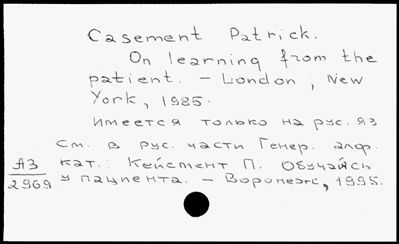 Casement Patrick.
On learning from the
patient. – London ; New
York, 1985.
Имеется только на рус. яз
См. в рус. части Генер. алф.
АЗ кат.: Кейсмент П. Обучаясь
2969 у пациента. – Воронеж, 1995.